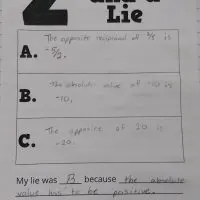 2
and a
Lie
The opposite reciprocal of 2/5 is
A. -5/2.
The absolute value of -10 is
B. -10.
The opposite of 20 is
C. -20.
My lie was B because the absolute
value has to be positive.